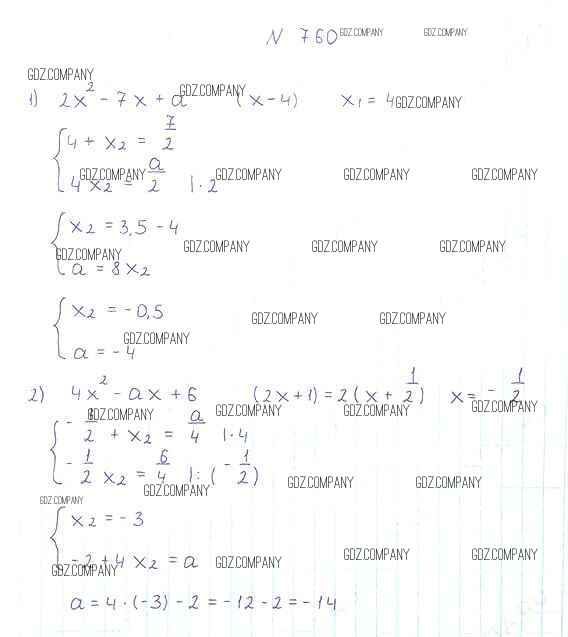 N 760 GDZ.COMPANY GDZ.COMPANY
GDZ.COMPANY
1) 2x² - 7x + a GDZ.COMPANY (x-4) x₁ = 4 GDZ.COMPANY
{ 4 + x₂ = 7/2
GDZ.COMPANY GDZ.COMPANY GDZ.COMPANY GDZ.COMPANY
4x₂ = a/2 |·2
{ x₂ = 3,5 - 4
GDZ.COMPANY GDZ.COMPANY GDZ.COMPANY GDZ.COMPANY
a = 8x₂
{ x₂ = -0,5 GDZ.COMPANY GDZ.COMPANY
GDZ.COMPANY
a = -4
2) 4x² - ax + 6 (2x+1) = 2(x + 1/2) x = - 1/2
GDZ.COMPANY GDZ.COMPANY GDZ.COMPANY GDZ.COMPANY
{ - 1/2 + x₂ = a/4 |·4
- 1/2 x₂ = 6/4 |: (- 1/2)
GDZ.COMPANY GDZ.COMPANY GDZ.COMPANY
GDZ.COMPANY
{ x₂ = -3
-2 + 4x₂ = a
GDZ.COMPANY GDZ.COMPANY GDZ.COMPANY GDZ.COMPANY
a = 4·(-3) - 2 = -12 - 2 = -14